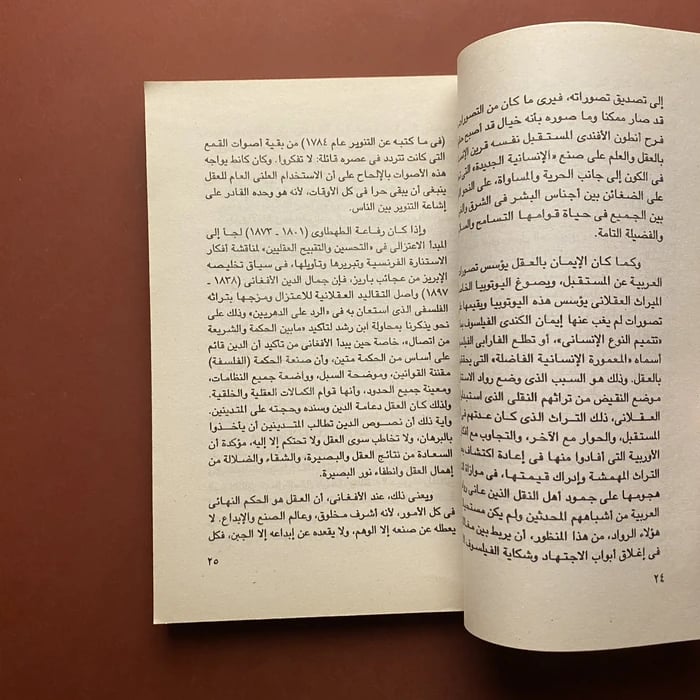 إلى تصديق تصوراته، فيرى ما كان من التصورات
قد صار ممكنا وما صوره بأنه خيال قد أصبح
فرح أنطون الأفندى المستقبل نفسه قرين
بالعقل والعلم على صنع «الإنسانية الجديدة» التى
فى الكون إلى جانب الحرية والمساواة، على النحو
على الضغائن بين أجناس البشر فى الشرق
بين الجميع فى حياة قوامها التسامح
والفضيلة التامة.
وكما كان الإيمان بالعقل يؤسس
العربية عن المستقبل، ويصوغ اليوتوبيا
الميراث العقلانى يؤسس هذه اليوتوبيا ويقيمها
تصورات لم يغب عنها إيمان الكندى الفيلسوف
«تتميم النوع الإنسانى»، أو تطلع الفارابى
أسماه «المعمورة الإنسانية الفاضلة» التى
بالعقل. وذلك هو السبب الذى وضع رواد
موضع النقيض من تراثهم النقلى الذى
العقلانى، ذلك التراث الذى كان عدتهم فى
المستقبل، والحوار مع الآخر، والتجاوب مع
الأوربية التى أفادوا منها فى إعادة اكتشاف
التراث المهمشة وإدراك قيمتها، فى موازاة
هجومها على جمود أهل النقل الذين عانى
العربية من أشباههم المحدثين ولم يكن
هؤلاء الرواد، من هذا المنظور، أن يربط بين
فى إغلاق أبواب الاجتهاد وشكاية الفيلسوف
٢٤
(فى ما كتبه عن التنوير عام ١٧٨٤) من بقية أصوات القمع
التى كانت تتردد فى عصره قائلة: لا تفكروا. وكان كانط يواجه
هذه الأصوات بالإلحاح على أن الاستخدام العلنى العام للعقل
ينبغى أن يبقى حرا فى كل الأوقات، لأنه هو وحده القادر على
إشاعة التنوير بين الناس.
وإذا كان رفاعة الطهطاوى (١٨٠١ ـ ١٨٧٣) لجأ إلى
المبدأ الاعتزالى فى «التحسين والتقبيح العقليين» لمناقشة أفكار
الاستنارة الفرنسية وتبريرها وتأويلها، فى سياق تخليصه
الإبريز من عجائب باريز، فإن جمال الدين الأفغانى (١٨٣٨ ـ
١٨٩٧) واصل التقاليد العقلانية للاعتزال ومزجها بتراثه
الفلسفى الذى استعان به فى «الرد على الدهريين» وذلك على
نحو يذكرنا بمحاولة ابن رشد لتأكيد «مابين الحكمة والشريعة
من اتصال»، خاصة حين يبدأ الأفغانى من تأكيد أن الدين قائم
على أساس من الحكمة متين، وأن صنعة الحكمة (الفلسفة)
مقننة القوانين، وموضحة السبل، وواضعة جميع النظامات،
ومعينة جميع الحدود، وأنها قوام الكمالات العقلية والخلقية.
ولذلك كان العقل دعامة الدين وسنده وحجته على المتدينين.
وآية ذلك أن نصوص الدين تطالب المتدينين أن يأخذوا
بالبرهان، ولا تخاطب سوى العقل ولا تحتكم إلا إليه، مؤكدة أن
السعادة من نتائج العقل والبصيرة، والشقاء والضلالة من
إهمال العقل وانطفاء نور البصيرة.
ويعنى ذلك، عند الأفغانى، أن العقل هو الحكم النهائى
فى كل الأمور، لأنه أشرف مخلوق، وعالم الصنع والإبداع. لا
يعطله عن صنعه إلا الوهم، ولا يقعده عن إبداعه إلا الجبن، فكل
٢٥